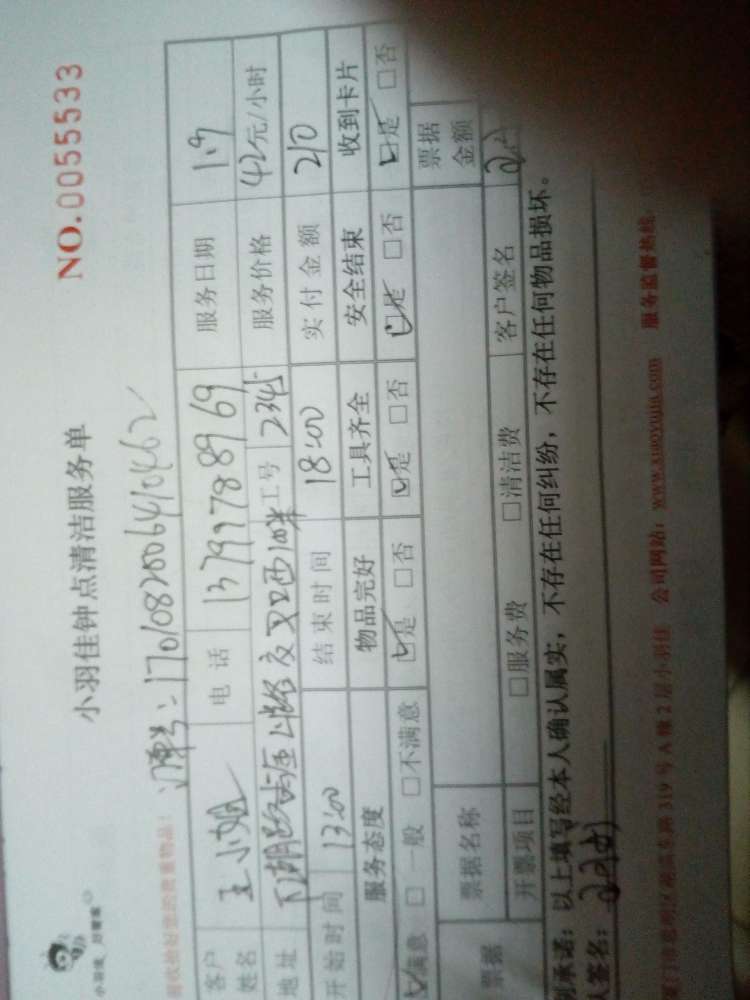 小羽佳 好管家
NO.0055533
小羽佳钟点清洁服务单
请收拾好您的贵重物品！
单号：1701082006410462
客户姓名 王小姐 电话 13799788969 服务日期 1.9
地址 工号 2345 服务价格 42元/小时
开始时间 13:00 结束时间 18:00 实付金额 210
服务态度 物品完好 工具齐全 安全结束 收到卡片
☑满意 □一般 □不满意 ☑是 □否 ☑是 □否 ☑是 □否 ☑是 □否
票据 票据名称 票据金额
开票项目 □服务费 □清洁费 客户签名
承诺：以上填写经本人确认属实，不存在任何纠纷，不存在任何物品损坏。
签名：
319号A幢2层小羽佳 公司网站：www.xiaoyujia.com 服务监督热线